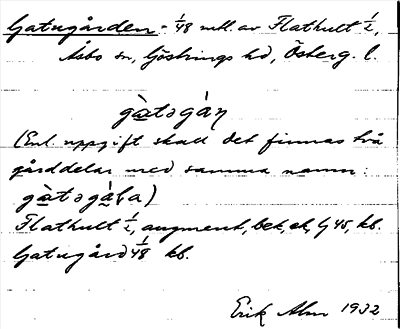 Gatugården - 1/48 mtl. av Flathult 1/2,
Åsbo sn, Göstrings hd, Österg. l.
gàtəgàn
(Enl. uppgift skall det finnas två
gårddelar med samma namn:
gàtəgàɽa)
Flathult 1/2, augment, bek, sk, G 45, kb.
Gatugård 1/48 kb.
Erik Alm 1932